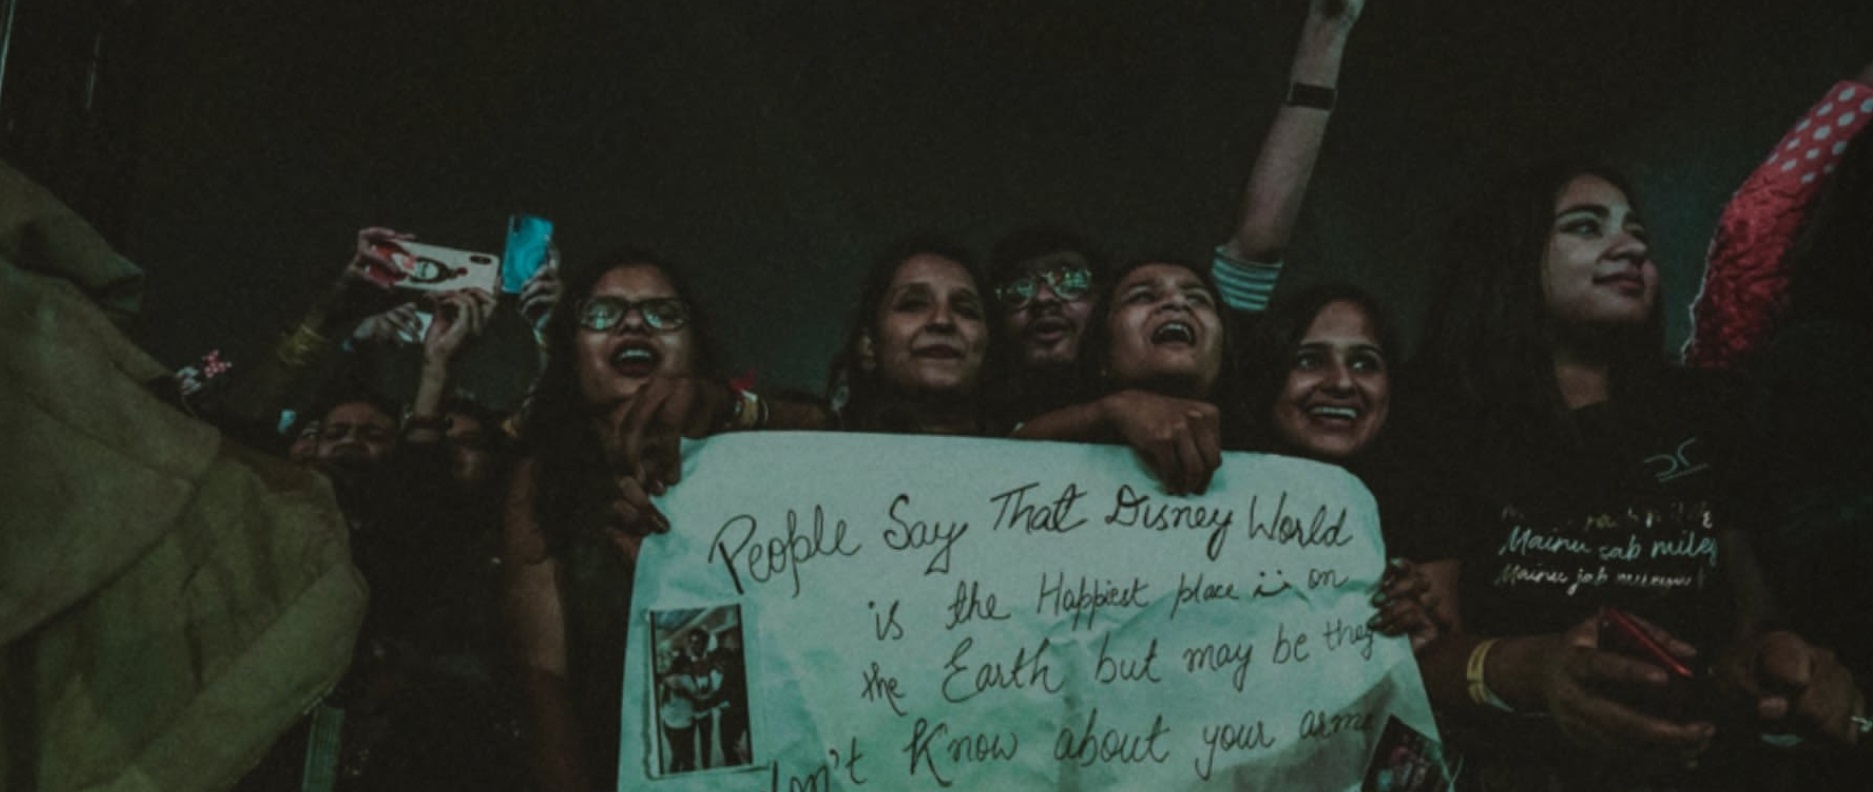 People Say That Disney World
is the Happiest place is on
the Earth but may be they
Know about your
Mainu sab miley
Mainu jab